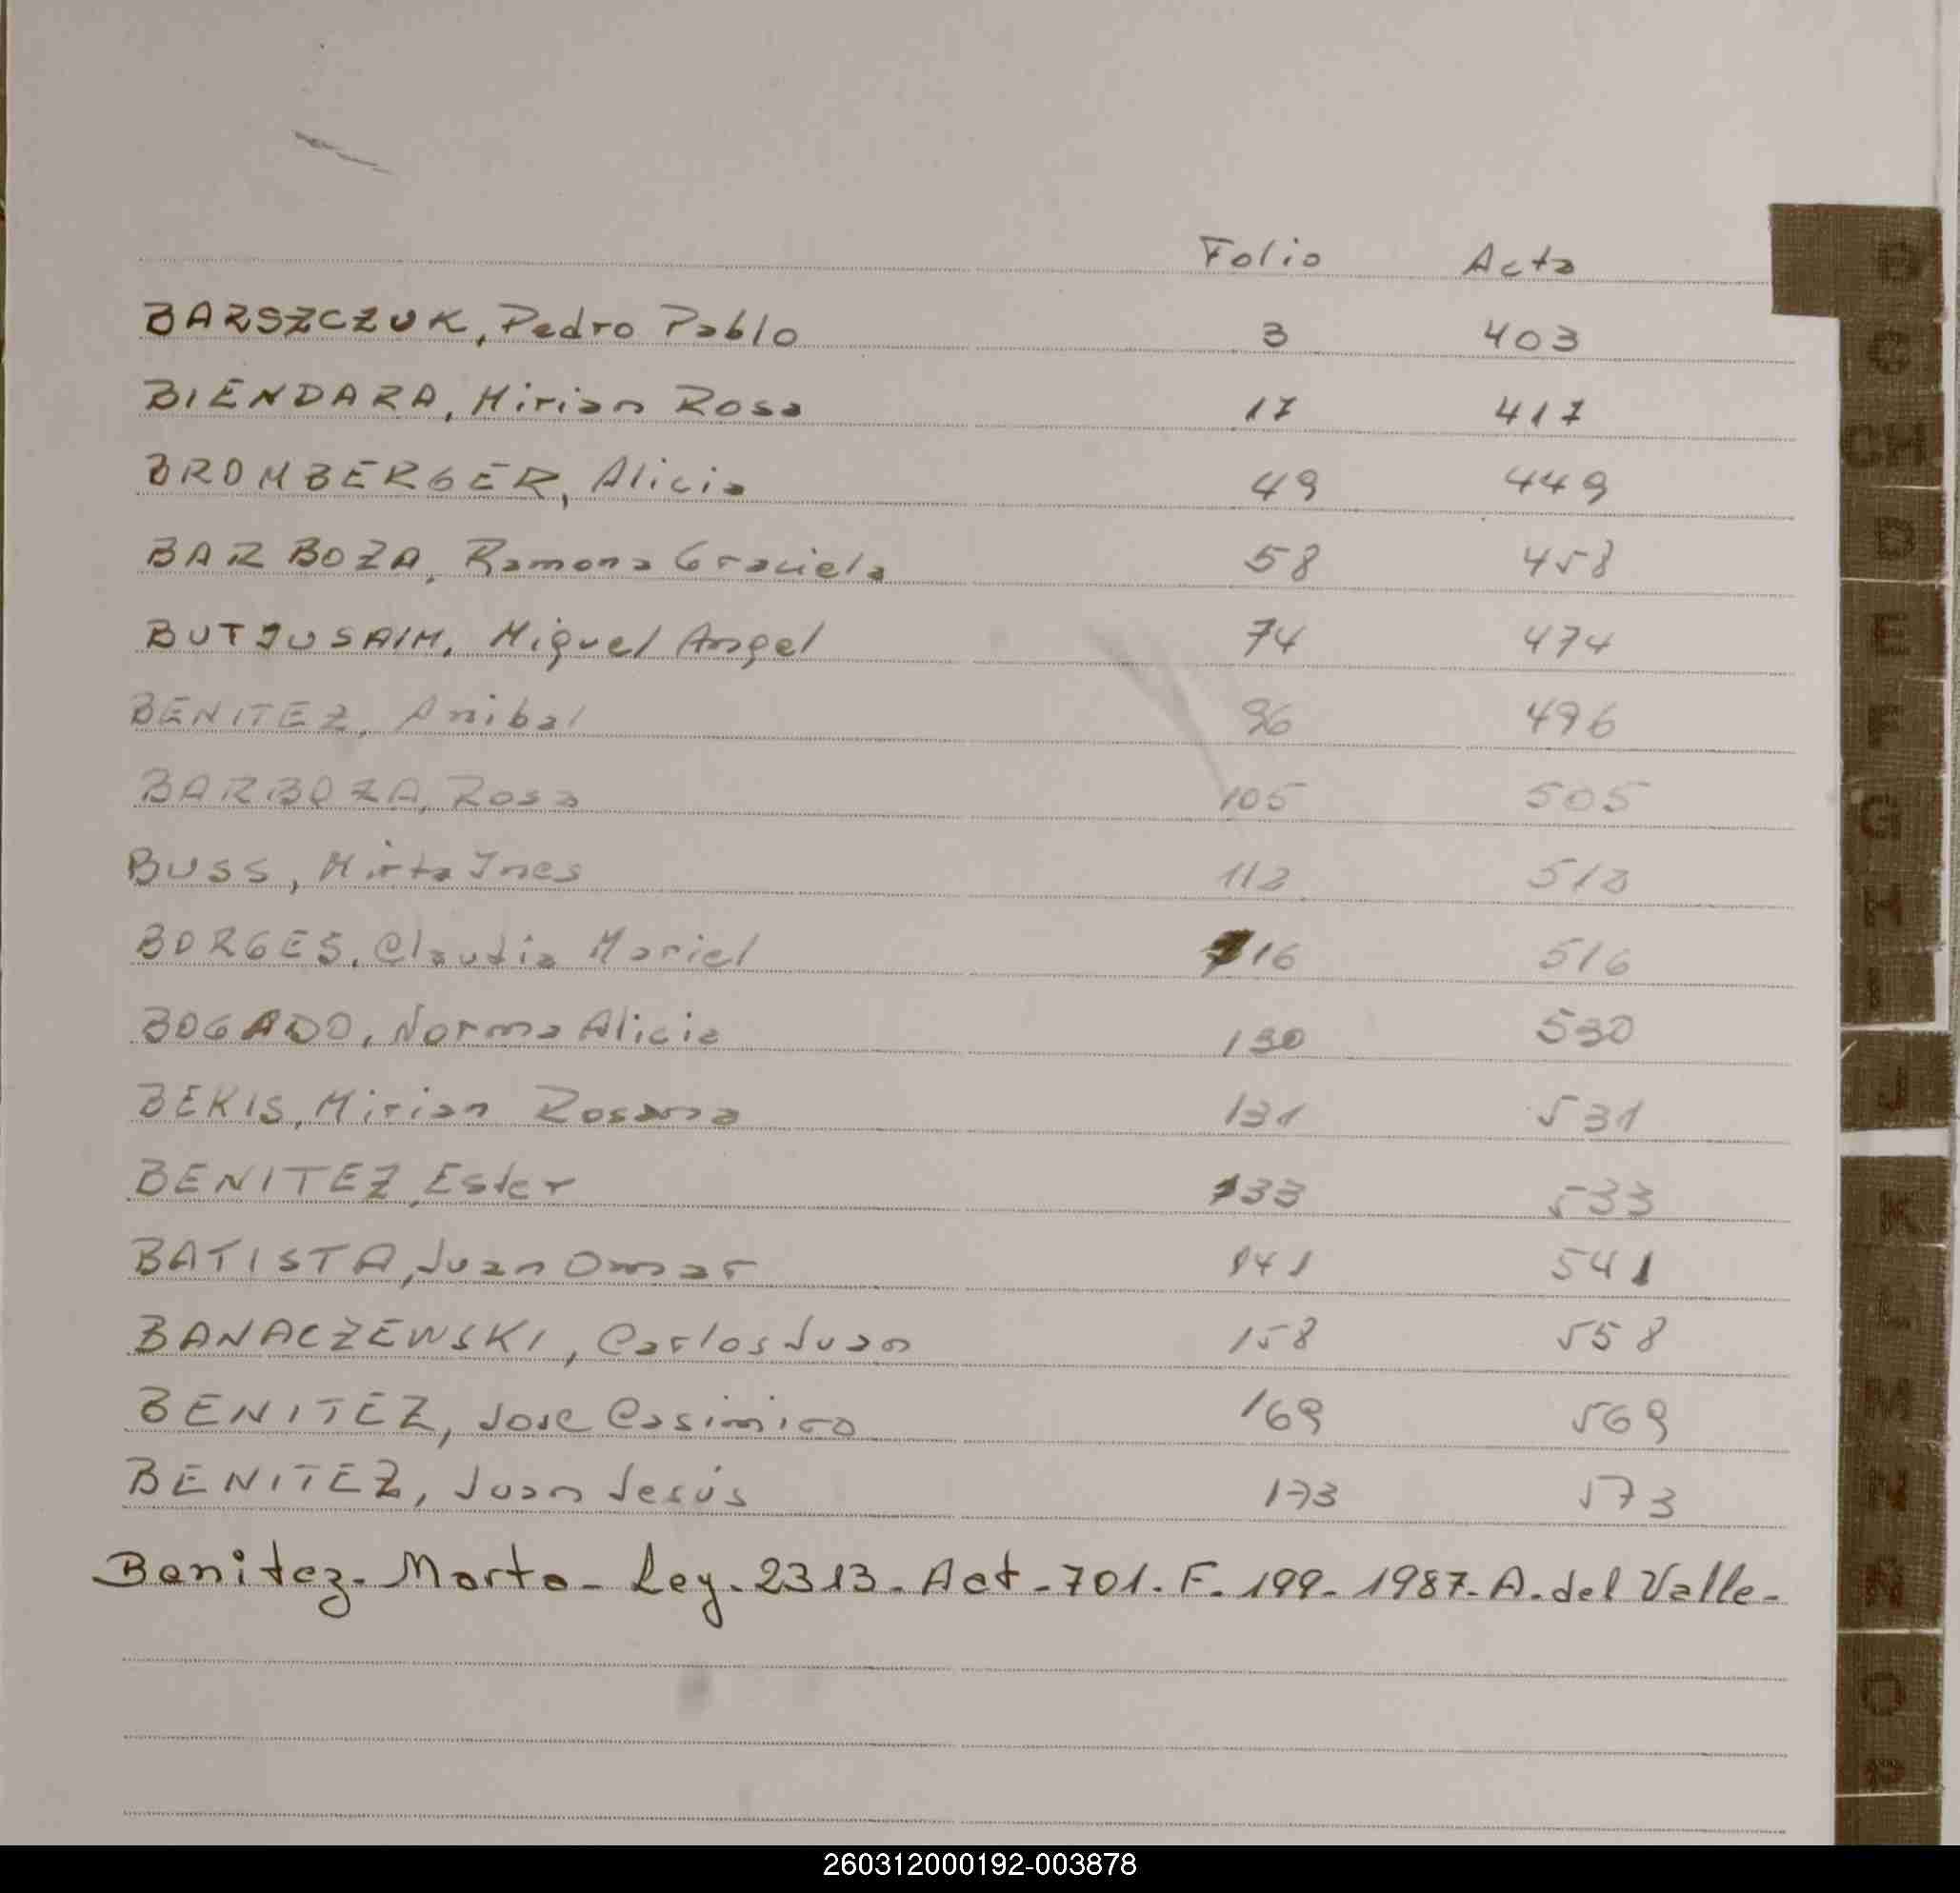 Folio Acta
BARSZCZUK, Pedro Pablo 3 403
BIENDARA, Mirian Rosa 17 417
BROMBERGER, Alicia 49 449
BARBOZA, Ramona Graciela 58 458
BUTJUSAIM, Miguel Angel 74 474
BENITEZ, Anibal 96 496
BARBOZA, Rosa 105 505
BUSS, Mirta Ines 113 513
BORGES, Claudia Mariel 116 516
BOGADO, Norma Alicia 130 530
BEKIS, Mirian Rosana 131 531
BENITEZ, Ester 133 533
BATISTA, Juan Omar 141 541
BANACZEWSKI, Carlos Juan 158 558
BENITEZ, Jose Casimiro 169 569
BENITEZ, Juan Jesús 173 573
Benitez - Marta - Ley - 2313 - Act - 701. F. 199 - 1987 - A. del Valle -
C
CH
D
E
F
G
H
I
J
K
L
M
N
Ñ
O
P
260312000192-003878